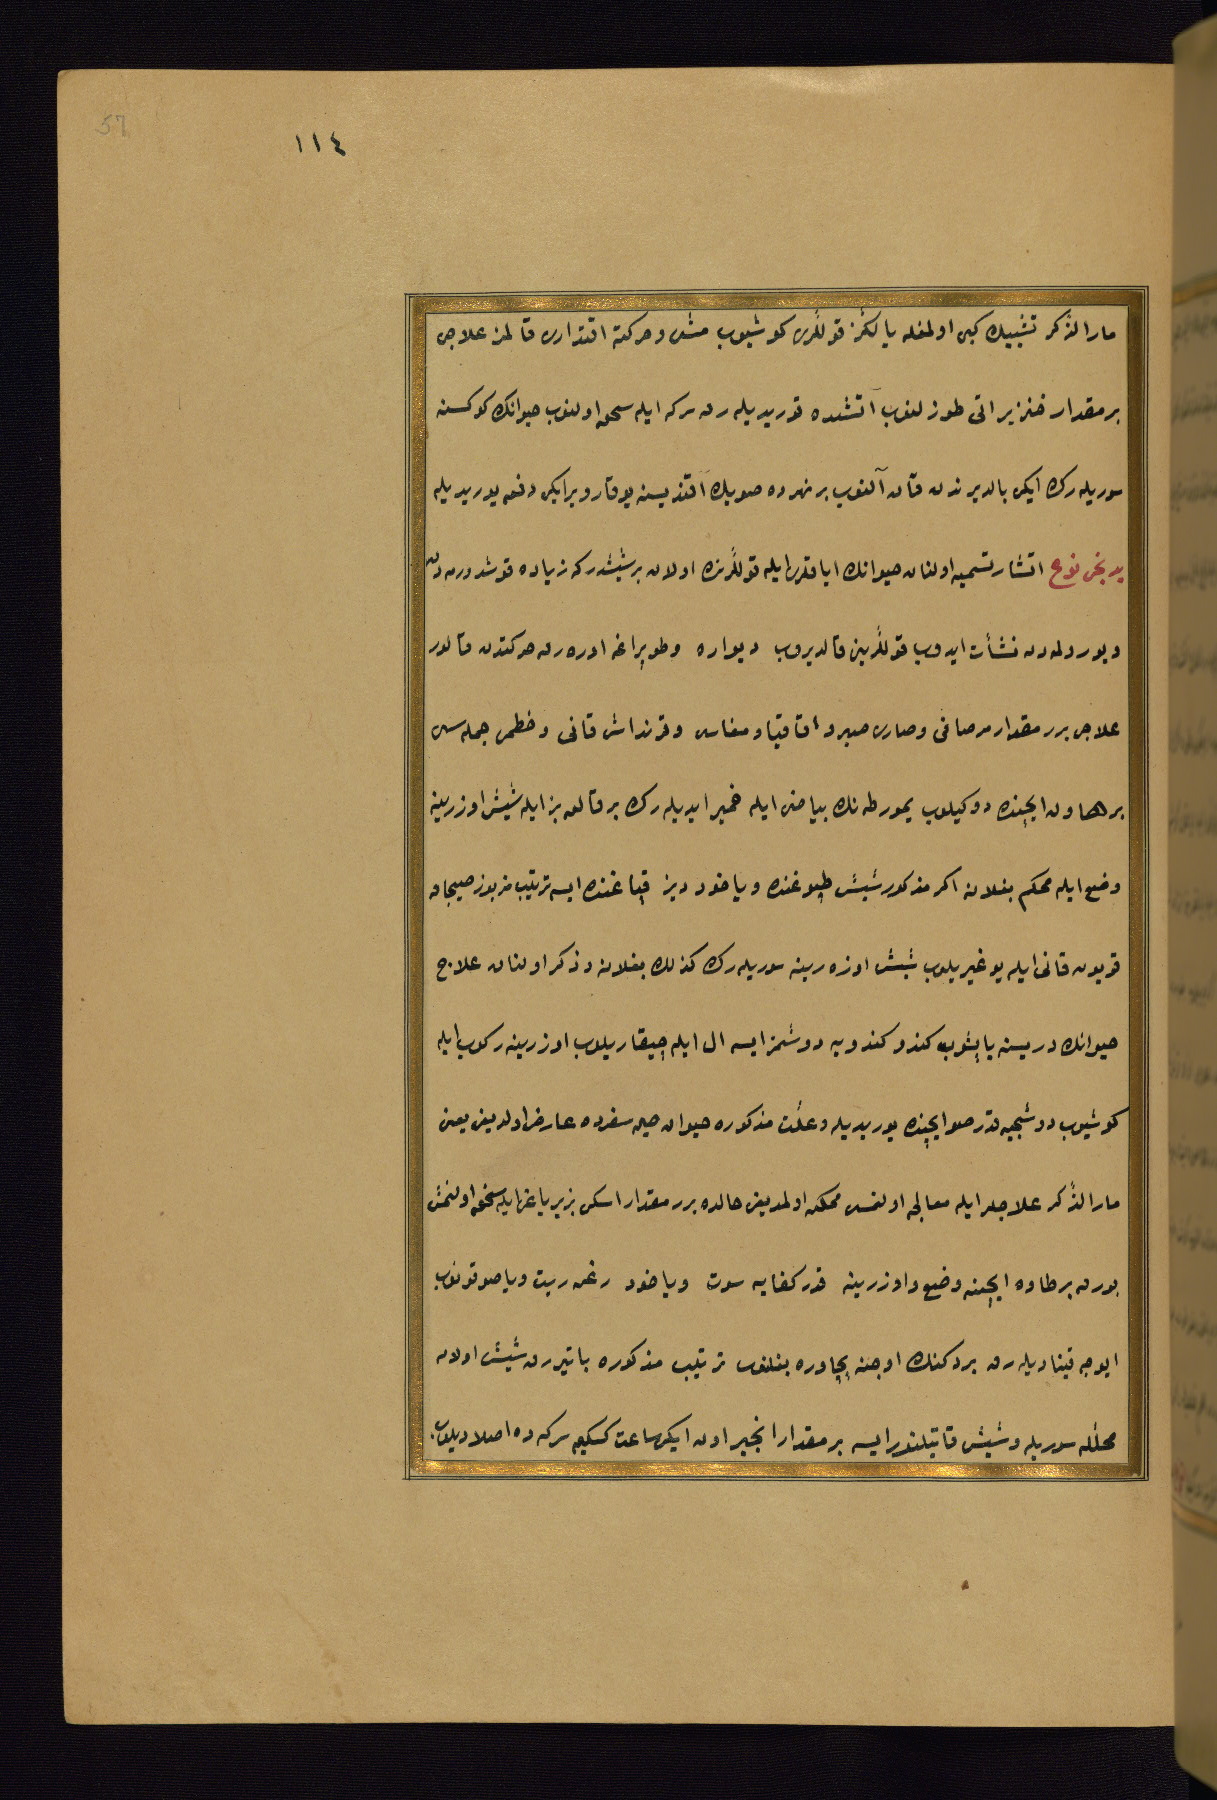 57
١١٤
مار الذكر تشبيك كبى اولمغله يالكز قوللرى كوشيوب مشى وحركته اقتدارى قالمز علاجى
بر مقدار خنزير اتى طوزلنوب آتشده قوريديله رق سركه ايله سحق اولنوب حيوانك كوكسنه
سوريله رك ايكى بالديرندن قان آلنوب بر نهرده صويك آقنديسنه يوقارو بر ايكى دفعه يوريديله
يدنجى نوع انتشار تسميه اولنان حيوانك اياقلرى ايله قوللرنده اولان بر شيشدركه زياده قوشدورمه دن
ويورولمه دن نشأت ايدوب قوللرين قالديروب ديواره وطوپراغه اوره رق حركتدن قالور
علاجى برر مقدار مر صافى وصارى صبر واقاقيا ومغاس وقرنداش قانى وخطمى جمله سى
بر هاون ايچنده دوكيلوب يمورطه نك بياضى ايله خمير ايديله رك بر قالين بز ايله شيش اوزرينه
وضع ايله محكم بغلانه اكر مذكور شيش طپوغنده وياخود ديز قپاغنده ايسه ترتيب مزبور صيجاق
قويون قانى ايله يوغيريلوب شيش اوزه رينه سوريله رك كذلك بغلانه وذكر اولنان علاج
حيوانك دريسنه ياپشوب كندو كندويه دوشمز ايسه ال ايله چيقاريلوب اوزرينه ركوب ايله
كوشيوب دوشنجيه قدر صو ايچنده يوريديله وعلت مذكوره حيوان حين سفرده عارض اولديغى يعنى
مار الذكر علاجلر ايله معالجه اولنمسى ممكن اولمديغى حالده برر مقدار اسكى بزير ياغى ايله سحق اولنمش
بورق بر طاوه ايچنه وضع واوزرينه قدر كفايه سوت وياخود رغن زيت ويا صو قونوب
ايوجه قيناديله رق بر دكنك اوجنه پچاوره بغلنوب ترتيب مذكوره باتيره رق شيش اولان
محلله سوريله وشيش قاتيلنور ايسه بر مقدار انجير اون ايكى ساعت كسكين سركه ده اصلاديلوب